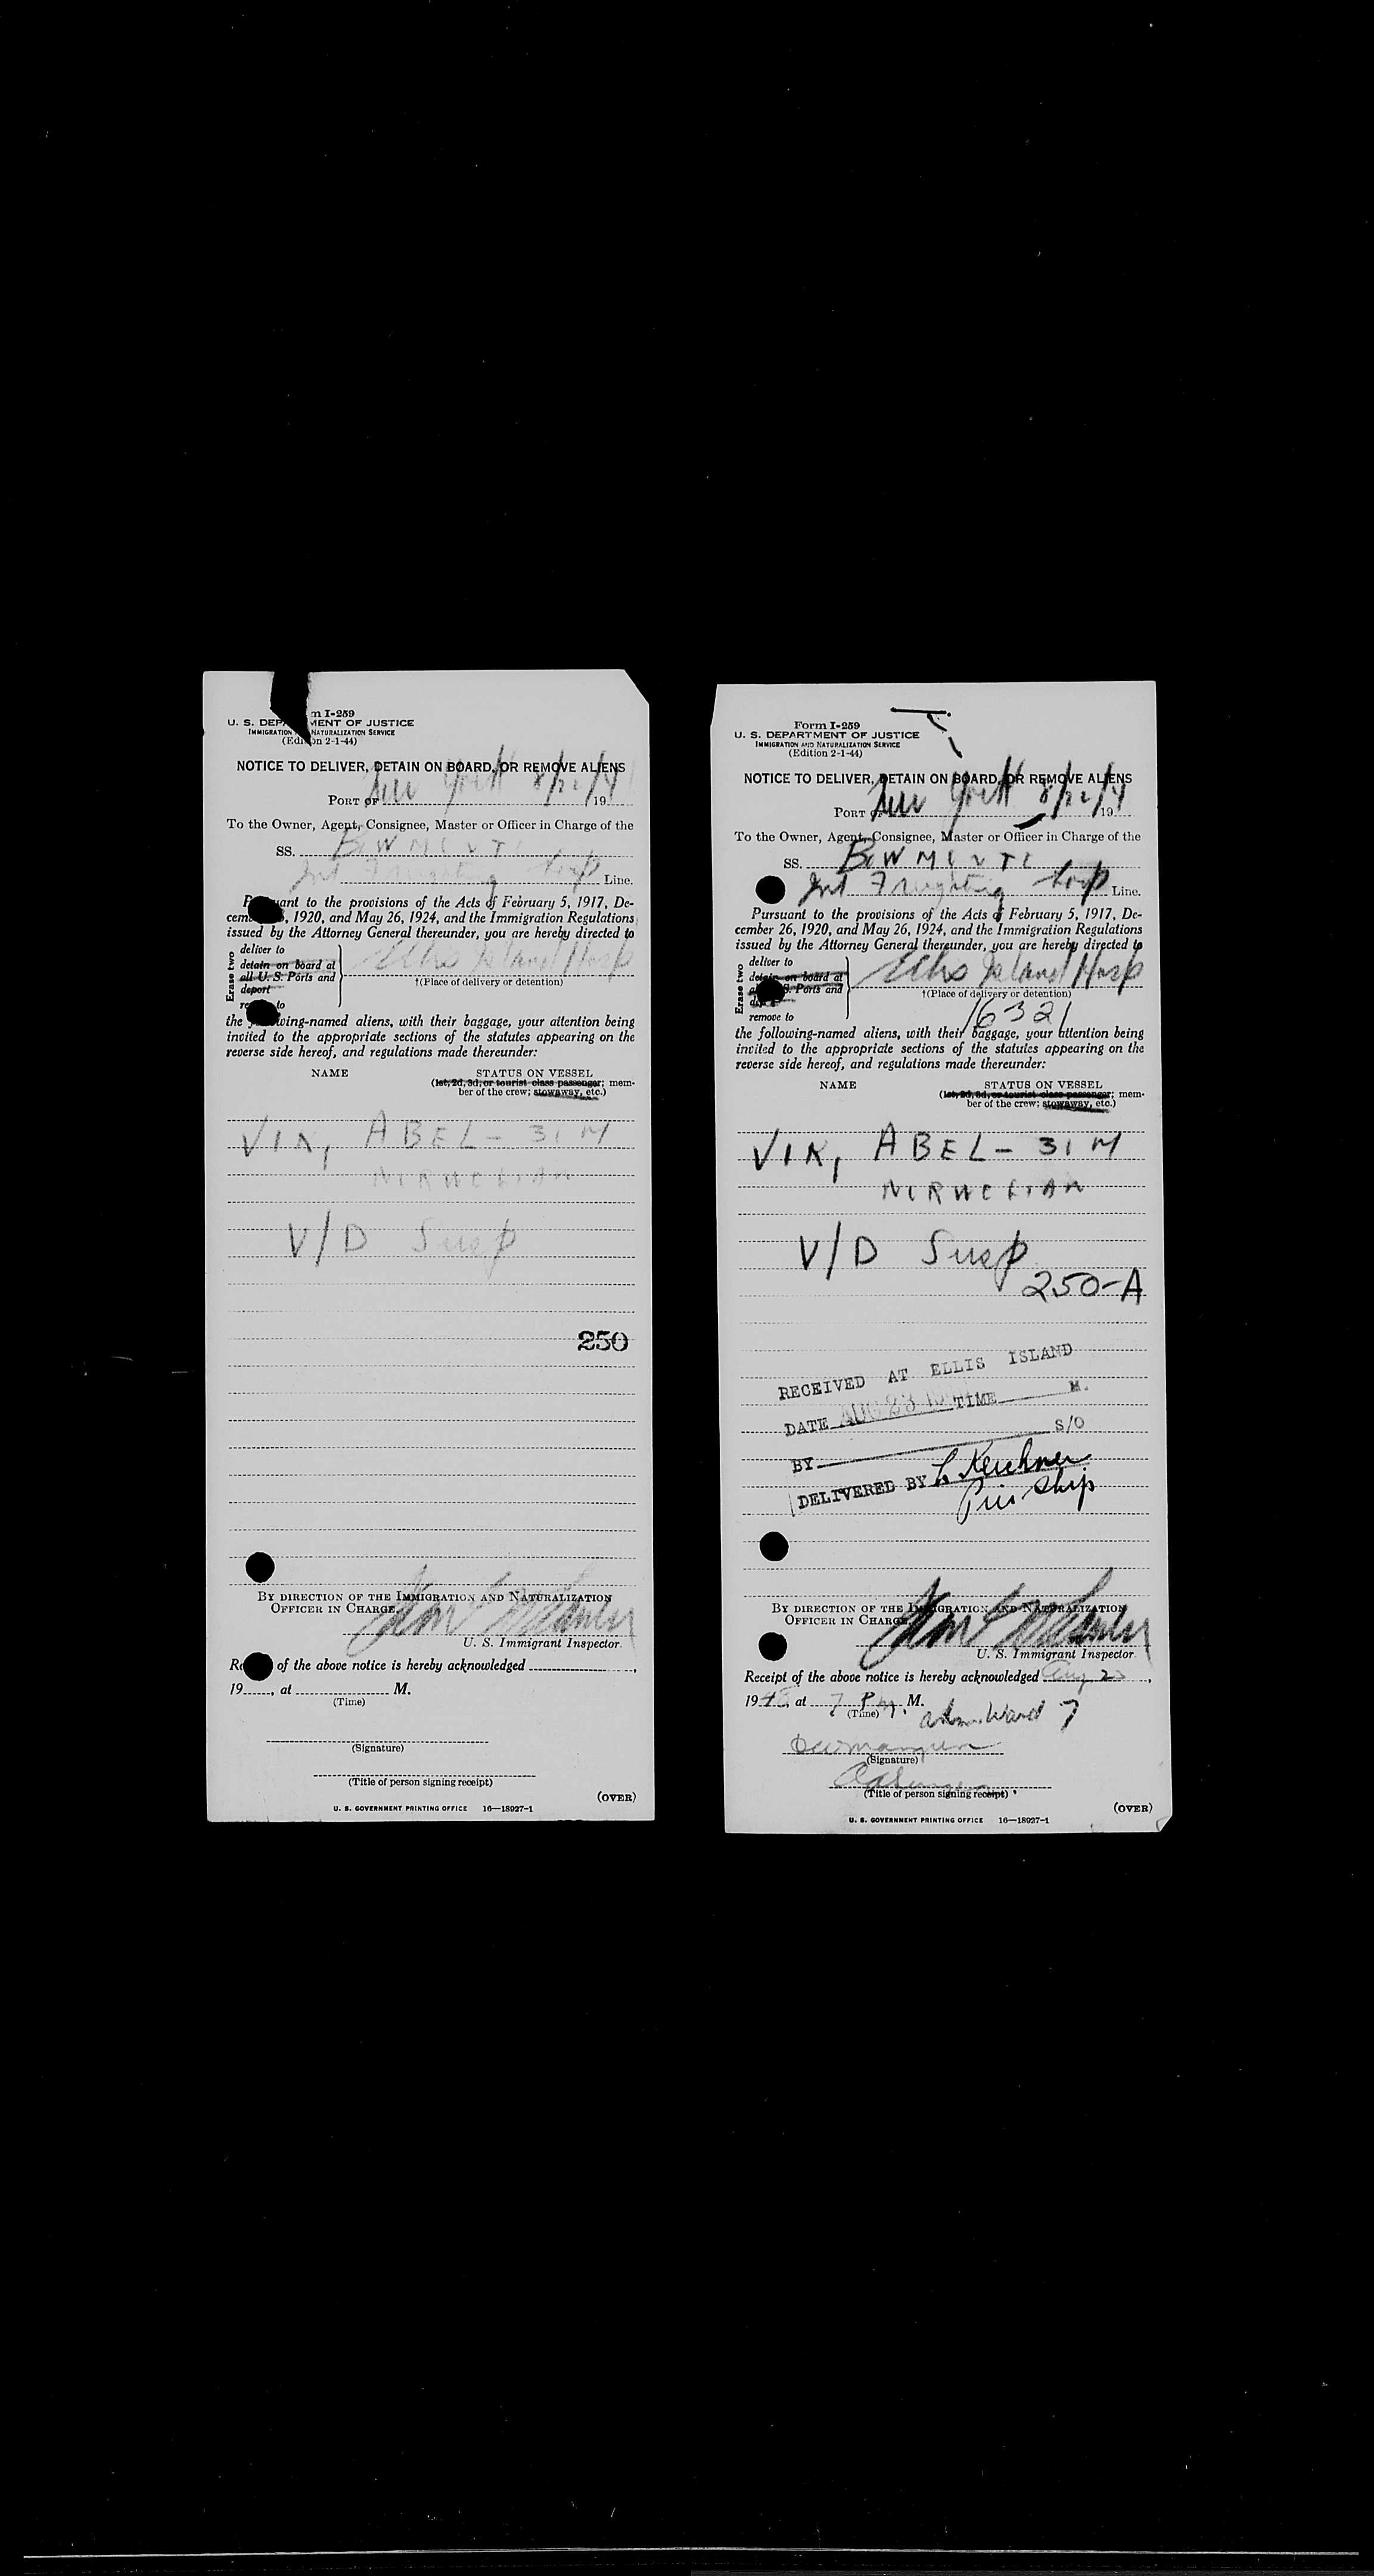 m I-259
U. S. DEP MENT OF JUSTICE
IMMIGRATION NATURALIZATION SERVICE
(Edition 2-1-44)
NOTICE TO DELIVER, DETAIN ON BOARD, OR REMOVE ALIENS
PORT OF New York 8/22/4 19
To the Owner, Agent, Consignee, Master or Officer in Charge of the
SS. BOWMONTE
Int Freighting Corp Line.
P uant to the provisions of the Acts of February 5, 1917, De-
cem , 1920, and May 26, 1924, and the Immigration Regulations
issued by the Attorney General thereunder, you are hereby directed to
Erase two
deliver to
detain on board at
all U. S. Ports and
deport
re to
Ellis Island Hosp
†(Place of delivery or detention)
the f wing-named aliens, with their baggage, your attention being
invited to the appropriate sections of the statutes appearing on the
reverse side hereof, and regulations made thereunder:
NAME STATUS ON VESSEL
(1st, 2d, 3d, or tourist class passenger; mem-
ber of the crew; stowaway, etc.)
VIK, ABEL - 31 M
NORWEGIAN
V/D Susp
250
BY DIRECTION OF THE IMMIGRATION AND NATURALIZATION
OFFICER IN CHARGE.
U. S. Immigrant Inspector.
Re of the above notice is hereby acknowledged ,
19 , at M.
(Time)
(Signature)
(Title of person signing receipt)
(OVER)
U. S. GOVERNMENT PRINTING OFFICE 16—18927-1
Form I-259
U. S. DEPARTMENT OF JUSTICE
IMMIGRATION AND NATURALIZATION SERVICE
(Edition 2-1-44)
NOTICE TO DELIVER, DETAIN ON BOARD, OR REMOVE ALIENS
PORT OF New York 8/22/4 19
To the Owner, Agent, Consignee, Master or Officer in Charge of the
SS. BOWMONTE
Int Freighting Corp Line.
Pursuant to the provisions of the Acts of February 5, 1917, De-
cember 26, 1920, and May 26, 1924, and the Immigration Regulations
issued by the Attorney General thereunder, you are hereby directed to
Erase two
deliver to
detain on board at
a S. Ports and
de
remove to
Ellis Island Hosp
†(Place of delivery or detention)
16321
the following-named aliens, with their baggage, your attention being
invited to the appropriate sections of the statutes appearing on the
reverse side hereof, and regulations made thereunder:
NAME STATUS ON VESSEL
(1st, 2d, 3d, or tourist class passenger; mem-
ber of the crew; stowaway, etc.)
VIK, ABEL - 31 M
NORWEGIAN
V/D Susp
250-A
RECEIVED AT ELLIS ISLAND
DATE AUG 23 19 TIME M.
BY S/O
DELIVERED BY L Kerchner
BY DIRECTION OF THE IMMIGRATION AND NATURALIZATION
OFFICER IN CHARGE.
U. S. Immigrant Inspector.
Receipt of the above notice is hereby acknowledged Aug 23,
19 , at 7 P M.
(Time)
adm. Ward 7
(Signature)
(Title of person signing receipt)
(OVER)
U. S. GOVERNMENT PRINTING OFFICE 16—18927-1